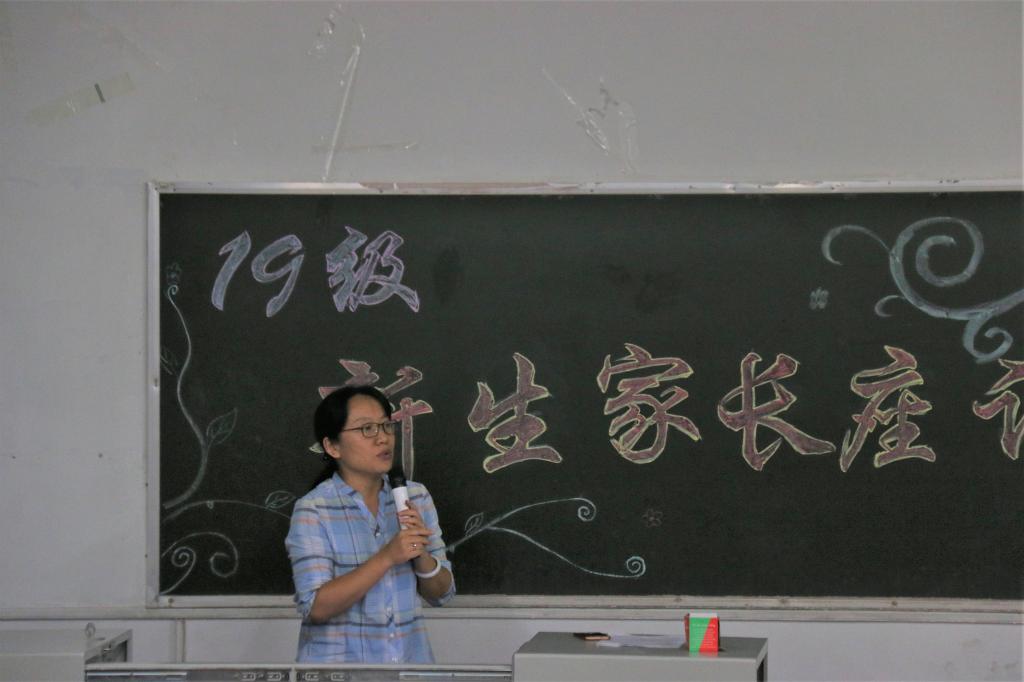 19级
新生家长座